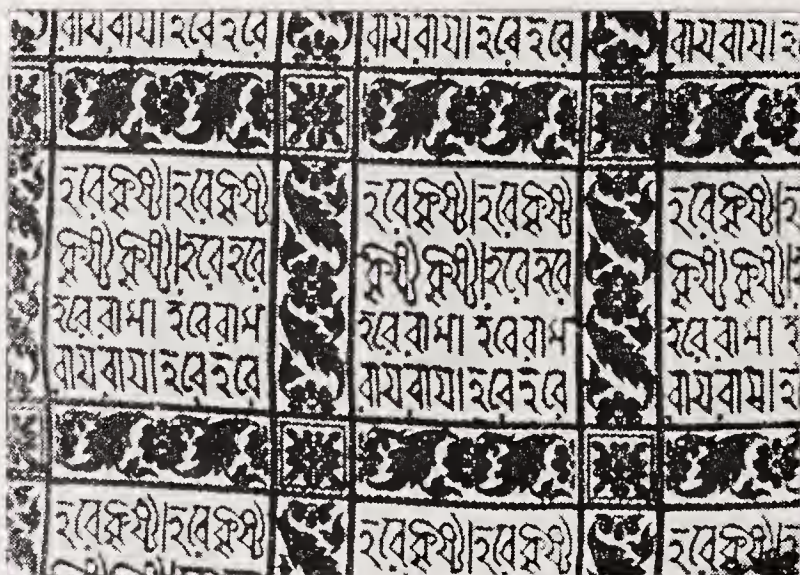 রামরাম।হরেহরে
রামরাম।হরেহরে
রামরাম।
হরেকৃষ্ণ।হরেকৃষ্ণ
কৃষ্ণকৃষ্ণ।হরেহরে
হরেরাম। হরেরাম
রামরাম।হরেহরে
হরেকৃষ্ণ।হরেকৃষ্ণ
কৃষ্ণকৃষ্ণ।হরেহরে
হরেরাম। হরেরাম
রামরাম।হরেহরে
হরেকৃষ্ণ।
কৃষ্ণকৃষ্ণ।
হরেরাম।
রামরাম।
হরেকৃষ্ণ।হরেকৃষ্ণ
হরেকৃষ্ণ।হরেকৃষ্ণ
হরেকৃষ্ণ।